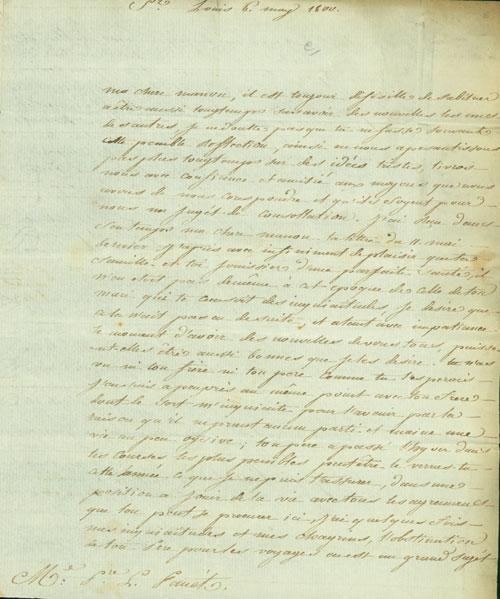 Louis 6. may 1800.
ma chere manon, il est toujour difficille de s'abituer
a être aussi longtemps sans avoir des nouvelles les uns
des autres, je ne doute pas que tu ne fasse souvent
cette penible reflection, ainsi ne nous apesantissons
pas plus longtemps sur des idées tristes, livrons
nous avec confiance et amitié aux moyens que nous
avons de nous correspondre et qu'ils soyent pour
nous un sujet de consollation. j'ai reçu dans
son temps ma chere manon ta lettre du 11. mai
dernier j'y apris avec infiniment de plaisir que ta
famille et toi jouissiez d'une parfaite santé, il
n'en etoit pas de même a cet epoque de celle de ton
mari qui te causoit des inquiétudes, je desire que
cela n'ait pas eu de suite, et atent avec impatience
le moment d'avoir des nouvelles de vous tous, puissent
elles être aussi bonnes que je les desire. tu n'as
vu ni ton frere ni ton pere comme tu l'esperois
j'en suis a peu près au même point avec ton frere
dont le sort m'inquiette pour l'avenir par la
raison qu'il ne prent aucun parti et maine une
vie un peu oysive; ton pere a passé l'hyver dans
les courses les plus penibles peut être le verras tu
cette année ce que je ne puis t'assurer, dans une
position a jouir de la vie avec tous les agrements
que l'on peut se procurer ici, j'ai quelques fois
mes inquiétudes et mes chagrins, l'obstination
de ton pere pour les voyages en est un grand sujet
Me. Pre. L. Panét.